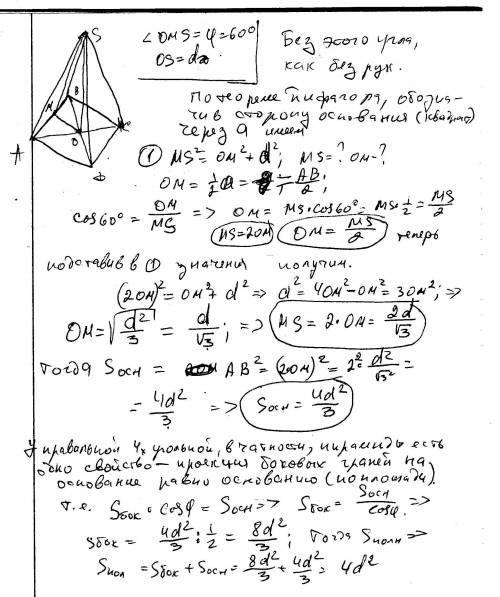 S
∠OMS=φ=60°
OS=d
Без этого угла,
как без рук.
B
M
A
O
C
D
По теореме Пифагора, обозна-
чив сторону основания (квадрат)
через a имеем
① MS²=OM²+d²; MS=? OM-?
OM=½a = AB/2;
cos60°= OM/MS => OM= MS·cos60°=MS·½= MS/2
MS=2OM OM= MS/2 теперь
подставив в ① значения получим.
(2OM)²=OM²+d² => d²=4OM²-OM²=3OM²; =>
OM=√(d²/3) = d/√3; => MS=2·OM= 2d/√3
тогда Sосн= AB²=(2OM)²=2²·d²/√3²=
= 4d²/3 => Sосн= 4d²/3
У правильной 4х угольной, в чатности, пирамиды есть
одно свойство – проекция боковых граней на
основание равно основанию (по площади).
т.е. Sбок·cosφ=Sосн=> Sбок= Sосн/cosφ. =>
Sбок= 4d²/3 : 1/2 = 8d²/3; Тогда Sполн=>
Sпол = Sбок+Sосн= 8d²/3 + 4d²/3 = 4d²